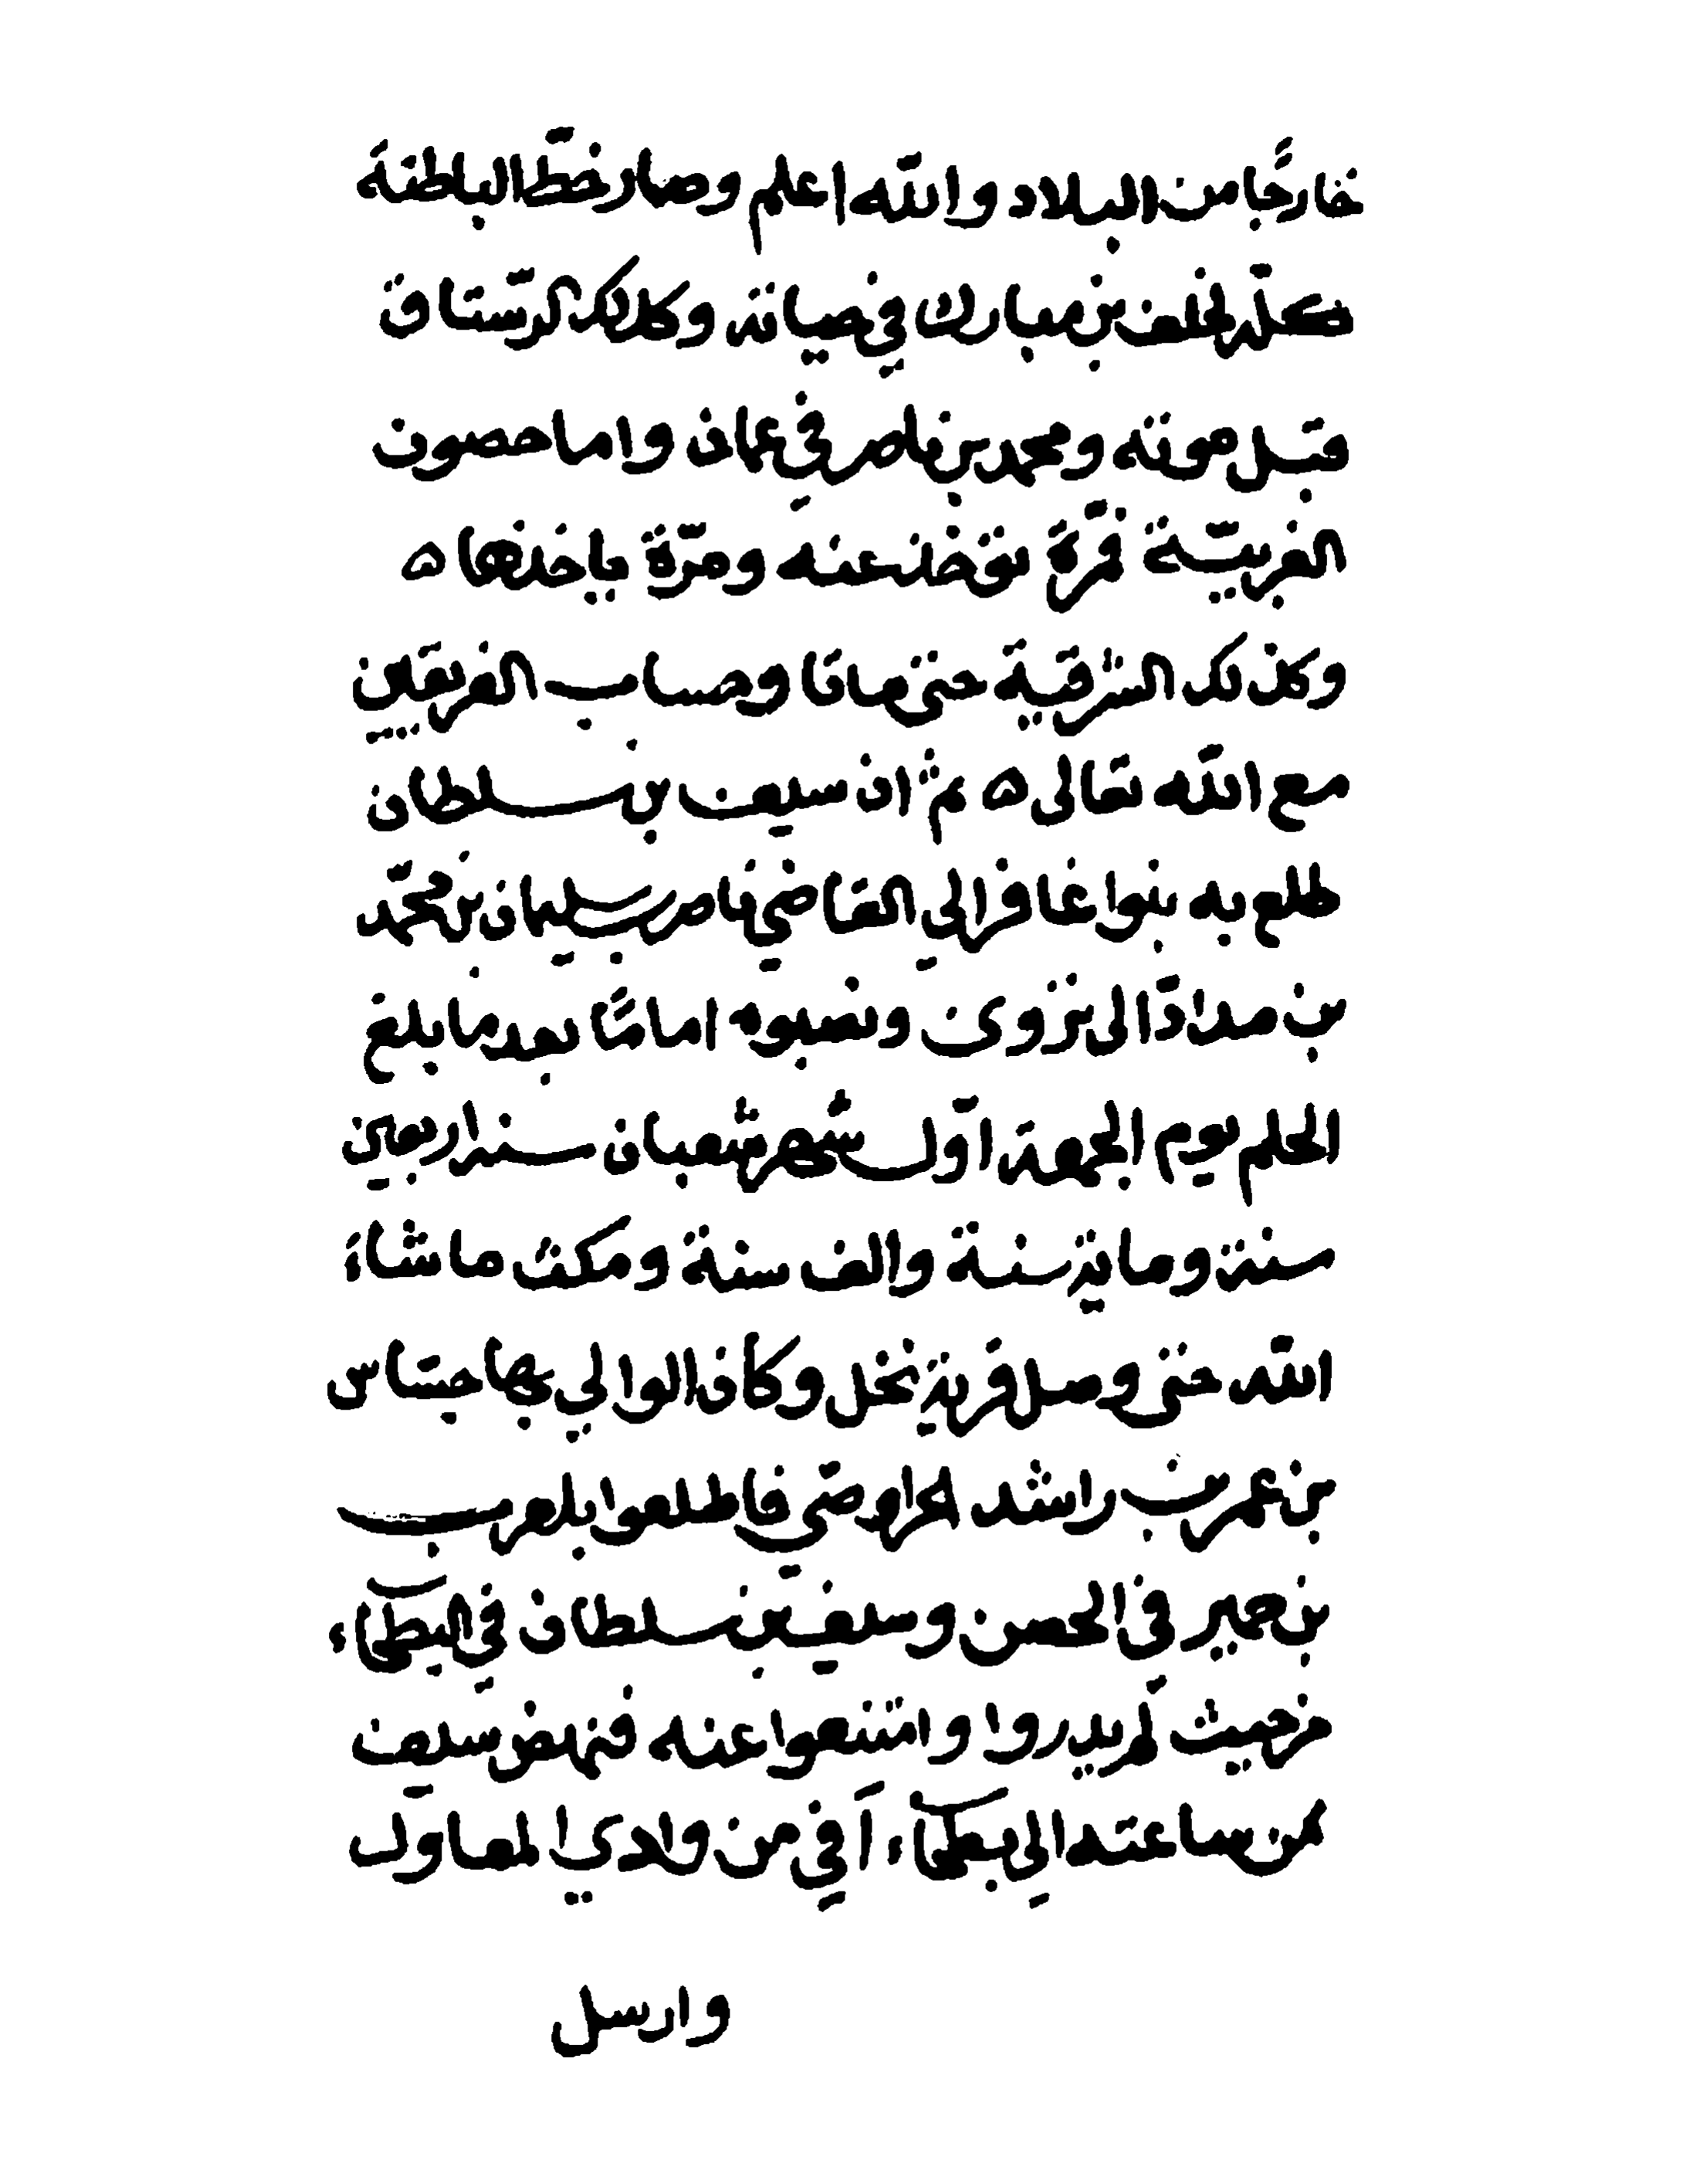 خارجًا من البلاد والله اعلم وصار خطّ الباطنة
كلّه لخلف بن مبارك في حياته وكذلك الرّستاق
قبل موته ومحمد بن ناصر في عمان واما حصون
الغربيّة فمرّة تؤخذ عنه ومرّة ياخذها ه
وكذلك الشرقية حتى ماتا وحساب الفريقين
مع الله تعالى ه ثم ان سيف بن سلطان
طلع به بنوا غافر الي القاضي ناصر بن سليمان بن محمّد
بن مدادّ الى نزوى ونصبوه امامًا بعد ما بلغ
الحلم يوم الجمعة اوّل شهر شعبان سنة اربعين
سنة وماية سنة والف سنة ومكث ما شاءَ
الله حتى وصل قرية نخل وكان الوالي بها جساس
بن عمر بن راشد الحراصي فاطلعوا بلعرب
بن حمير في الحصن وسيف بن سلطان في البطحاء
من حيث لم يدروا وامتنعوا عنه فنهض سيف
من ساعته الي بطحاء آفي من وادي المعاول
وارسل